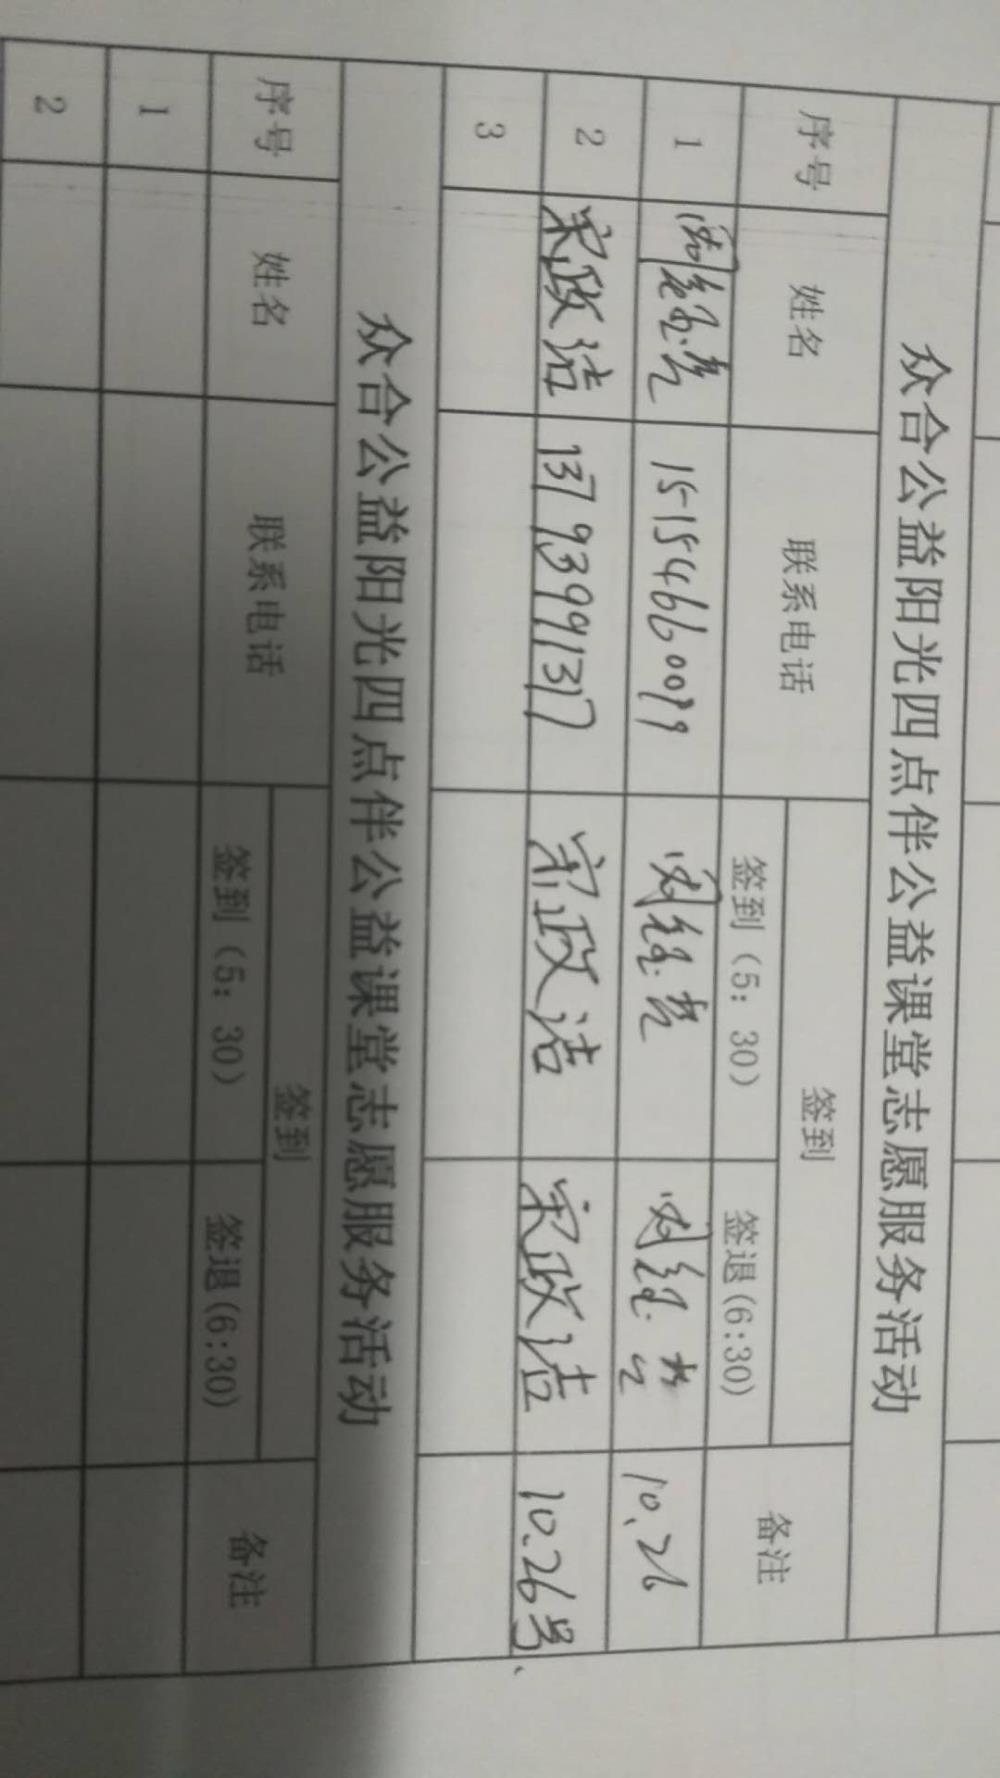 众合公益阳光四点伴公益课堂志愿服务活动
序号 姓名 联系电话 签到 备注
签到（5：30） 签退(6:30)
1 15154660099 10.26
2 宋政洁 13793991317 宋政洁 宋政洁 10.26号、
3
众合公益阳光四点伴公益课堂志愿服务活动
序号 姓名 联系电话 签到 备注
签到（5：30） 签退(6:30)
1
2